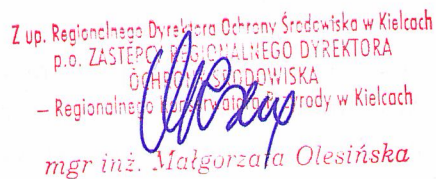 Z up. Regionalnego Dyrektora Ochrony Środowiska w Kielcach
p.o. ZASTĘPCY REGIONALNEGO DYREKTORA
OCHRONY ŚRODOWISKA
– Regionalnego Konserwatora Przyrody w Kielcach
mgr inż. Małgorzata Olesińska